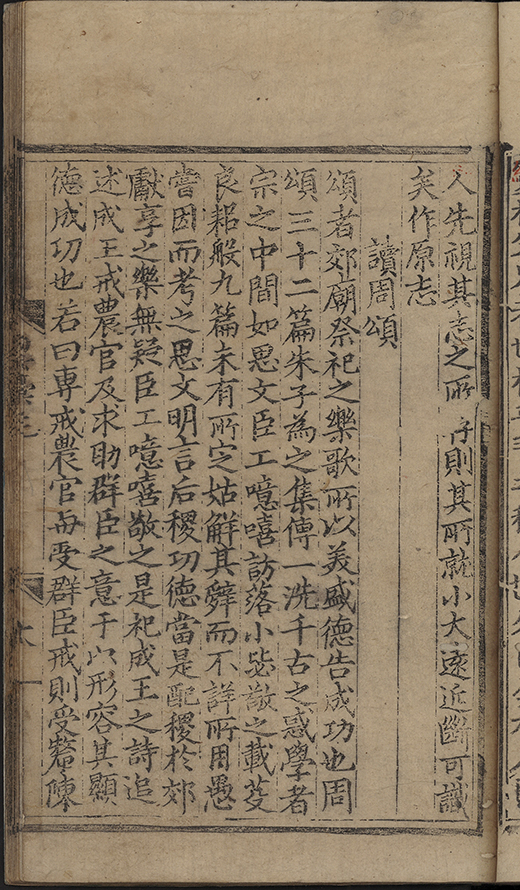 人先視其志之所存則其所就小大遠近斷可識
矣作原志
讀周頌
頌者郊廟祭祀之樂歌所以美盛德告成功也周
頌三十二篇朱子為之集傳一洗千古之惑學者
宗之中間如思文臣工噫嘻訪落小毖敬之載芟
良耜般九篇未有所定姑解其辭而不詳所用愚
嘗因而考之思文明言后稷功德當是配稷於郊
獻享之樂無疑臣工噫嘻敬之是祀成王之詩追
述成王戒農官及求助群臣之意于以形容其顯
德成功也若曰専戒農官每受群臣戒則受釐陳